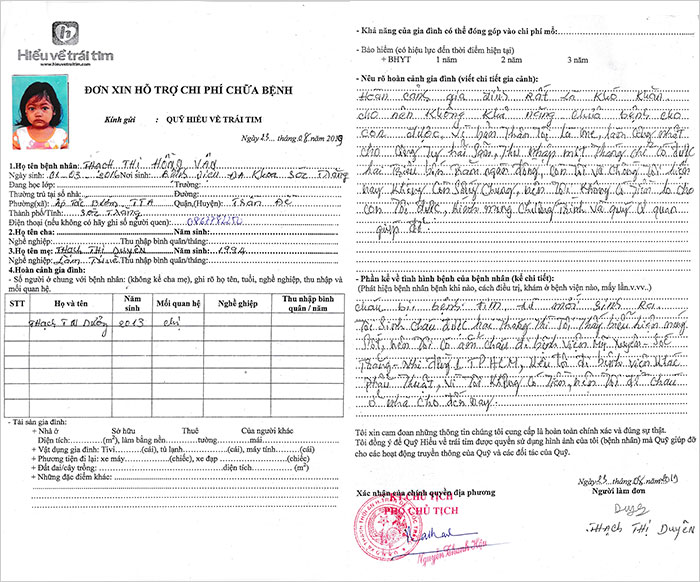 Hiểu về trái tim
www.hieuvetraitim.com
ĐƠN XIN HỖ TRỢ CHI PHÍ CHỮA BỆNH
Kính gửi : QUỸ HIỂU VỀ TRÁI TIM
Ngày 23 tháng 08 năm 2019
1.Họ tên bệnh nhân: THẠCH THỊ HỒNG VÂN
Ngày sinh: 01-03-2016 Nơi sinh: Bệnh Viện ĐA Khoa Sóc Trăng
Đang học lớp: Trường:
Thường trú tại số nhà: Đường:
Phường(xã): Ấp Tắc Bướm, TTA Quận,(Huyện): Trần Đề
Thành phố/Tỉnh: Sóc Trăng
Điện thoại (nếu không có hãy ghi số người quen):
2.Họ tên cha: Năm sinh:
Nghề nghiệp: Thu nhập bình quân/tháng:
3.Họ tên mẹ: Thạch Thị Duyên Năm sinh: 1994
Nghề nghiệp: Làm Thuê Thu nhập bình quân/tháng:
4.Hoàn cảnh gia đình:
- Số người ở chung với bệnh nhân: (không kể cha mẹ), ghi rõ họ tên, tuổi, nghề nghiệp, thu nhập và
mối quan hệ.
STT Họ và tên Năm sinh Mối quan hệ Nghề ghiệp Thu nhập bình quân / năm
Thạch Thị Dưỡng 2013 chị
- Tài sản gia đình:
+ Nhà ở Sở hữu Thuê Của người khác
Diện tích:(m²), làm bằng nền tường mái
+ Vật dụng gia đình: Tivi (cái), tủ lạnh (cái), máy tính (cái)
+ Phương tiện đi lại: xe máy (chiếc), xe đạp (chiếc)
+ Đất đai/cây trồng: diện tích (m²)
+ Những đặc điểm khác:
- Khả năng của gia đình có thể đóng góp vào chi phí mổ:
- Bảo hiểm (có hiệu lực đến thời điểm hiện tại)
+ BHYT 1 năm 2 năm 3 năm
- Nêu rõ hoàn cảnh gia đình (viết chi tiết gia cảnh):
Hoàn cảnh gia đình Rất là Khó Khăn
cho nên Không Khả năng Chữa bệnh cho
con được, Vì bản thân Tôi là mẹ, làm công nhật
cho công ty hải sản, Thu nhập một tháng chỉ có được
hai Triệu bốn trăm ngàn đồng, con Tôi và Chồng Tôi hiện
nay Không Còn Sống Chung, nên Tôi Không có Tiền lo cho
con Tôi được, Kính mong Chương Trình và quý cơ quan
giúp đỡ.
- Phần kể về tình hình bệnh của bệnh nhân (kể chi tiết):
(Phát hiện bệnh nhân bệnh khi nào, cách điều trị, khám ở bệnh viện nào, mấy lần.v.v..)
cháu bị bệnh Tim, từ mới Sinh Ra.
Tôi Sinh Cháu được hai Tháng Thì Tôi Thấy biểu hiện
nên Tôi có ẵm cháu đi bệnh viện Mỹ Xuyên-Sóc
Trăng-Nhi đồng 1 TPHCM,
phẫu Thuật, Vì Tôi Không có Tiền, nên Tôi để Cháu
ở nhà Cho đến nay.
Tôi xin cam đoan những thông tin chúng tôi cung cấp là hoàn toàn chính xác và đúng sự thật.
Tôi đồng ý để Quỹ Hiểu về trái tim được quyền sử dụng hình ảnh của tôi (bệnh nhân) mà Quỹ giúp đỡ
cho các hoạt động truyền thông của Quỹ và các đối tác của Quỹ.
Ngày 23 tháng 08 năm 2019
Xác nhận của chính quyền địa phương Người làm đơn
KT.CHỦ TỊCH
PHÓ CHỦ TỊCH
Duyên
THẠCH THỊ DUYÊN